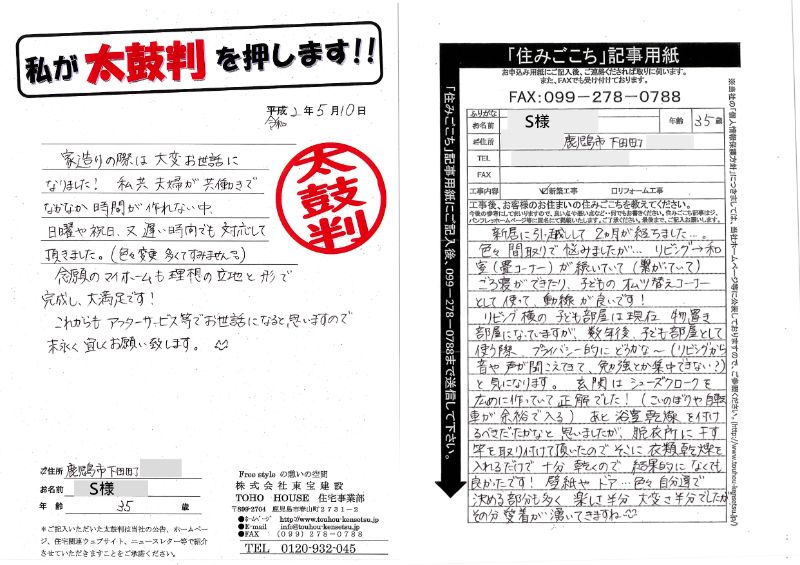 私が太鼓判を押します!!
平成
令和 2年5月10日
家造りの際は大変お世話に
なりました! 私共夫婦が共働きで
なかなか時間が作れない中、
日曜や祝日、又遅い時間でも対応して
頂きました。(色々変更多くてすみません💦)
念願のマイホームも理想の立地と形で
完成し、大満足です!
これからもアフターサービス等でお世話になると思いますので
末永く宜しくお願い致します。
太鼓判
ご住所 鹿児島市下田町
お名前 S様
年 齢 35 歳
※ご記入いただいた太鼓判は当社の公告、ホームペー
ジ、住宅関連ウェブサイト、ニュースレター等で紹介
させていただきますことをご承諾ください。
Free style の憩いの空間
株式会社東宝建設
TOHO HOUSE 住宅事業部
〒899-2704 鹿児島市春山町2311-1
●ホームページ http://www.touhou-kensetsu.jp
●E-mail info@touhou-kensetsu.jp
●FAX (099)278-0788
TEL 0120-932-045
「住みごこち」記事用紙
お申込み用紙にご記入後、ご連絡くだされば取りに伺います。
また、FAXでも受け付けております。
FAX:099-278-0788
ふりがな
お名前 S様 年齢 35歳
ご住所 鹿児島市下田町
TEL
FAX
工事内容 ☑新築工事 □リフォーム工事
工事後、お客様のお住まいの住みごこちを教えてください。
新居に引越して2カ月が経ちました…。
色々間取りで悩みましたが…リビング→和
室(畳コーナー)が続いていて(繋がっていて)
ごろ寝ができたり、子どものオムツ替えコーナー
として使って、動線が良いです!
リビング横の子ども部屋は現在物置き
部屋になっていますが、数年後、子ども部屋として
使う際、プライバシー的にどうかな~(リビングから
音や声が聞こえてきて、勉強とか集中できない?)
と気になります。玄関はシューズクロークを
広めに作っていて正解でした!(こいのぼりや自転
車が余裕で入る)あと浴室乾燥を付け
るべきだったかなと思いましたが、脱衣所に干す
竿を取り付けて頂いたのでそこに衣類乾燥を
入れるだけで十分乾くので結果的になくても
良かったです!壁紙やドア…色々自分達で
決める部分も多く楽しさ半分大変さ半分でしたが
その分愛着が湧いてきますね
「住みごこち」記事用紙にご記入後、099-278-0788まで送信して下さい。